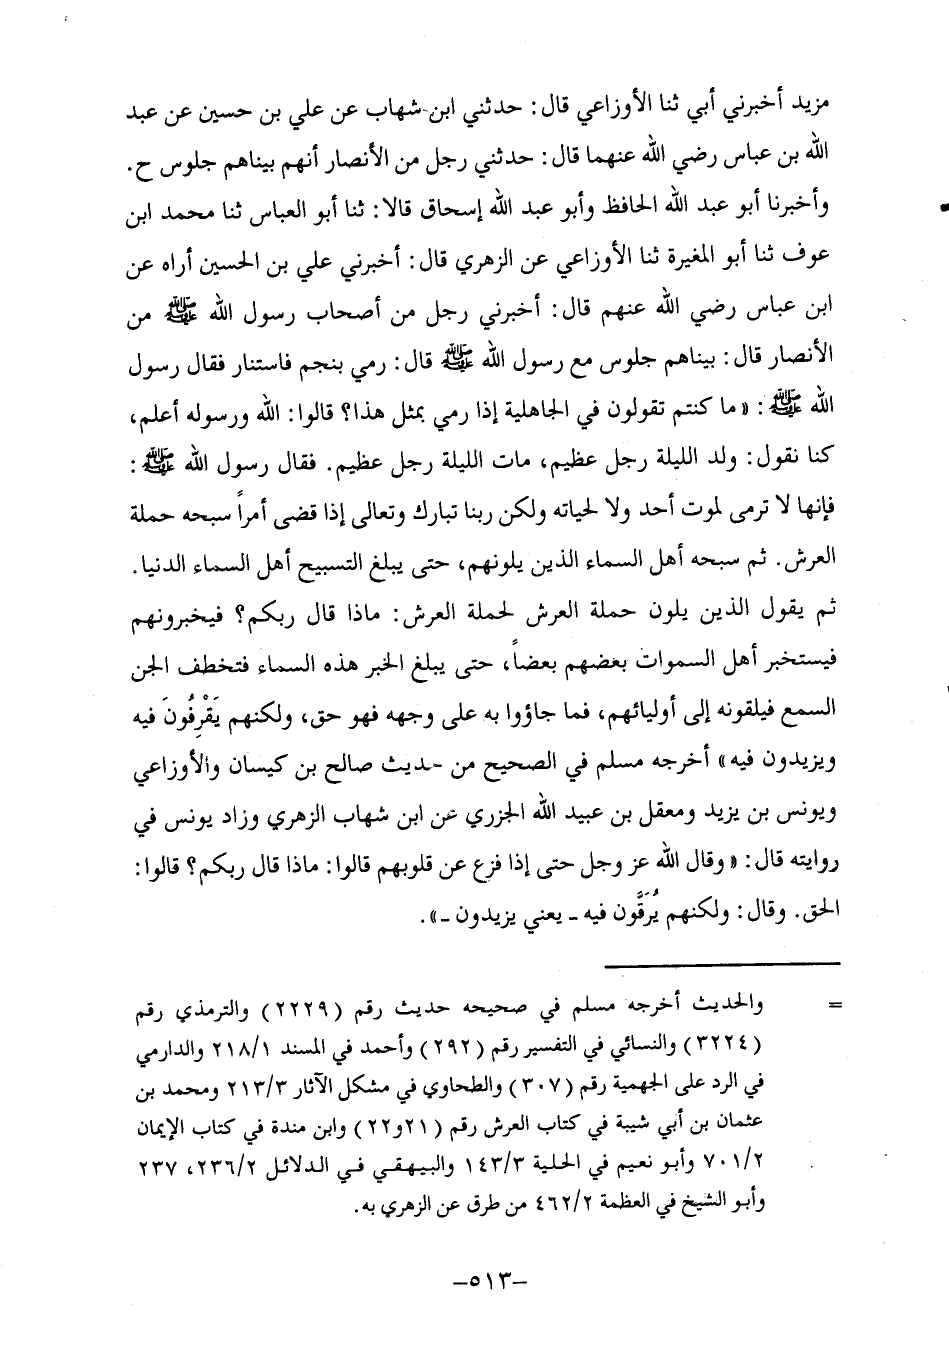 مزيد أخبرني أبي ثنا الأوزاعي قال: حدثني ابن شهاب عن علي بن حسين عن عبد
الله بن عباس رضي الله عنهما قال: حدثني رجل من الأنصار أنهم بيناهم جلوس ح.
وأخبرنا أبو عبد الله الحافظ وأبو عبد الله إسحاق قالا: ثنا أبو العباس ثنا محمد ابن
عوف ثنا أبو المغيرة ثنا الأوزاعي عن الزهري قال: أخبرني علي بن الحسين أراه عن
ابن عباس رضي الله عنهم قال: أخبرني رجل من أصحاب رسول الله ﷺ من
الأنصار قال: بيناهم جلوس مع رسول الله ﷺ قال: رمي بنجم فاستنار فقال رسول
الله ﷺ: «ما كنتم تقولون في الجاهلية إذا رمي بمثل هذا؟ قالوا: الله ورسوله أعلم،
كنا نقول: ولد الليلة رجل عظيم، مات الليلة رجل عظيم. فقال رسول الله ﷺ:
فإنها لا ترمى لموت أحد ولا لحياته ولكن ربنا تبارك وتعالى إذا قضى أمراً سبحه حملة
العرش. ثم سبحه أهل السماء الذين يلونهم، حتى يبلغ التسبيح أهل السماء الدنيا.
ثم يقول الذين يلون حملة العرش لحملة العرش: ماذا قال ربكم؟ فيخبرونهم
فيستخبر أهل السموات بعضهم بعضاً، حتى يبلغ الخبر هذه السماء فتخطف الجن
السمع فيلقونه إلى أوليائهم، فما جاؤوا به على وجهه فهو حق، ولكنهم يَقْرِفُونَ فيه
ويزيدون فيه» أخرجه مسلم في الصحيح من حديث صالح بن كيسان والأوزاعي
ويونس بن يزيد ومعقل بن عبيد الله الجزري عن ابن شهاب الزهري وزاد يونس في
روايته قال: «وقال الله عز وجل حتى إذا فزع عن قلوبهم قالوا: ماذا قال ربكم؟ قالوا:
الحق. وقال: ولكنهم يُرَقَّون فيه ـ يعني يزيدون ـ».
= والحديث أخرجه مسلم في صحيحه حديث رقم (٢٢٢٩) والترمذي رقم
(٣٢٢٤) والنسائي في التفسير رقم (٢٩٢) وأحمد في المسند ٢١٨/١ والدارمي
في الرد على الجهمية رقم (٣٠٧) والطحاوي في مشكل الآثار ٢١٣/٣ ومحمد بن
عثمان بن أبي شيبة في كتاب العرش رقم (٢١و٢٢) وابن مندة في كتاب الإيمان
٧٠١/٢ وأبو نعيم في الحلية ١٤٣/٣ والبيهقي في الدلائل ٢٣٦/٢، ٢٣٧
وأبو الشيخ في العظمة ٤٦٢/٢ من طرق عن الزهري به.
–٥١٣–